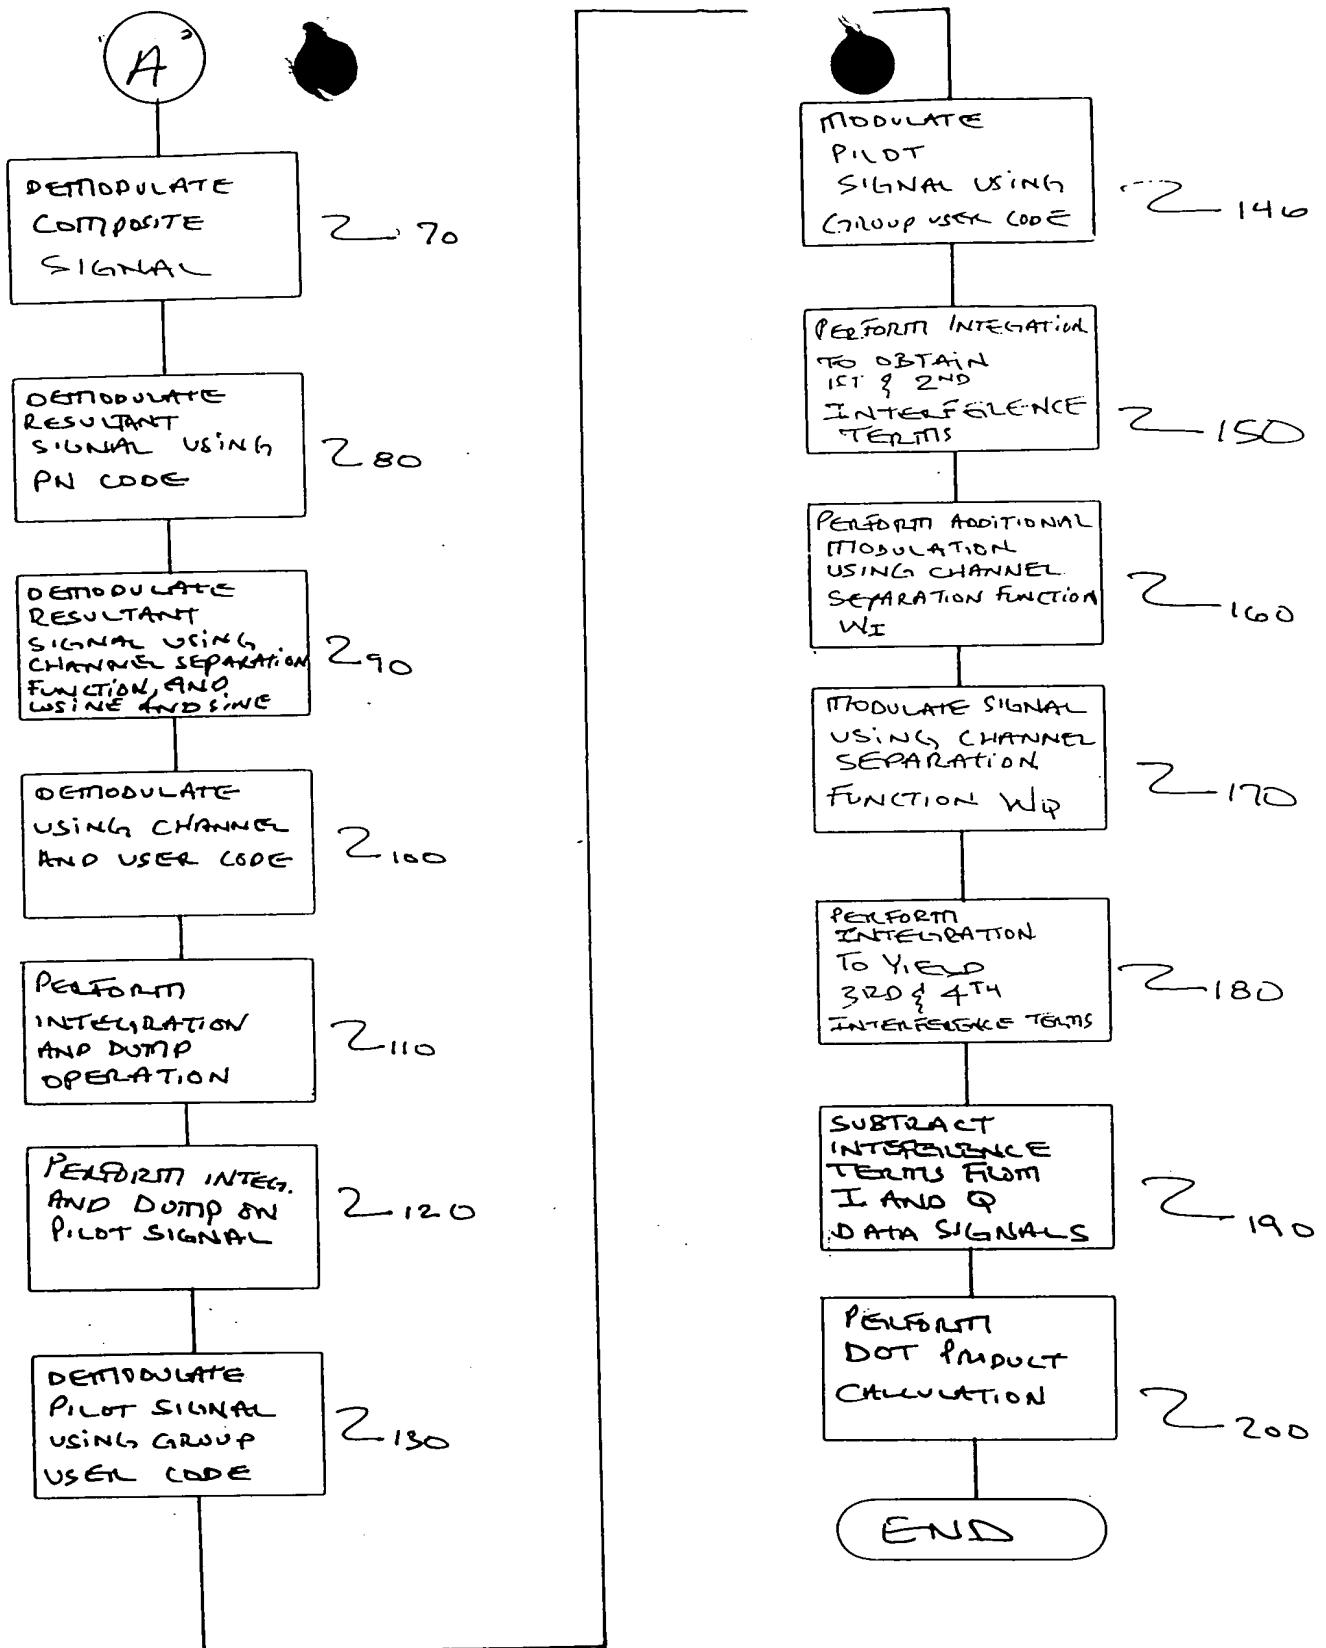 "A"
DEMODULATE
COMPOSITE
SIGNAL
70
DEMODULATE
RESULTANT
SIGNAL USING
PN CODE
80
DEMODULATE
RESULTANT
SIGNAL USING
CHANNEL SEPARATION
FUNCTION, AND
COSINE AND SINE
90
DEMODULATE
USING CHANNEL
AND USER CODE
100
PERFORM
INTEGRATION
AND DUMP
OPERATION
110
PERFORM INTEG.
AND DUMP ON
PILOT SIGNAL
120
DEMODULATE
PILOT SIGNAL
USING GROUP
USER CODE
130
MODULATE
PILOT
SIGNAL USING
GROUP USER CODE
140
PERFORM INTEGATION
TO OBTAIN
1ST & 2ND
INTERFERENCE
TERMS
150
PERFORM ADDITIONAL
MODULATION
USING CHANNEL
SEPARATION FUNCTION
WI
160
MODULATE SIGNAL
USING CHANNEL
SEPARATION
FUNCTION WQ
170
PERFORM
INTEGRATION
TO YIELD
3RD & 4TH
INTERFERENCE TERMS
180
SUBTRACT
INTERFERENCE
TERMS FROM
I AND Q
DATA SIGNALS
190
PERFORM
DOT PRODUCT
CALCULATION
200
END